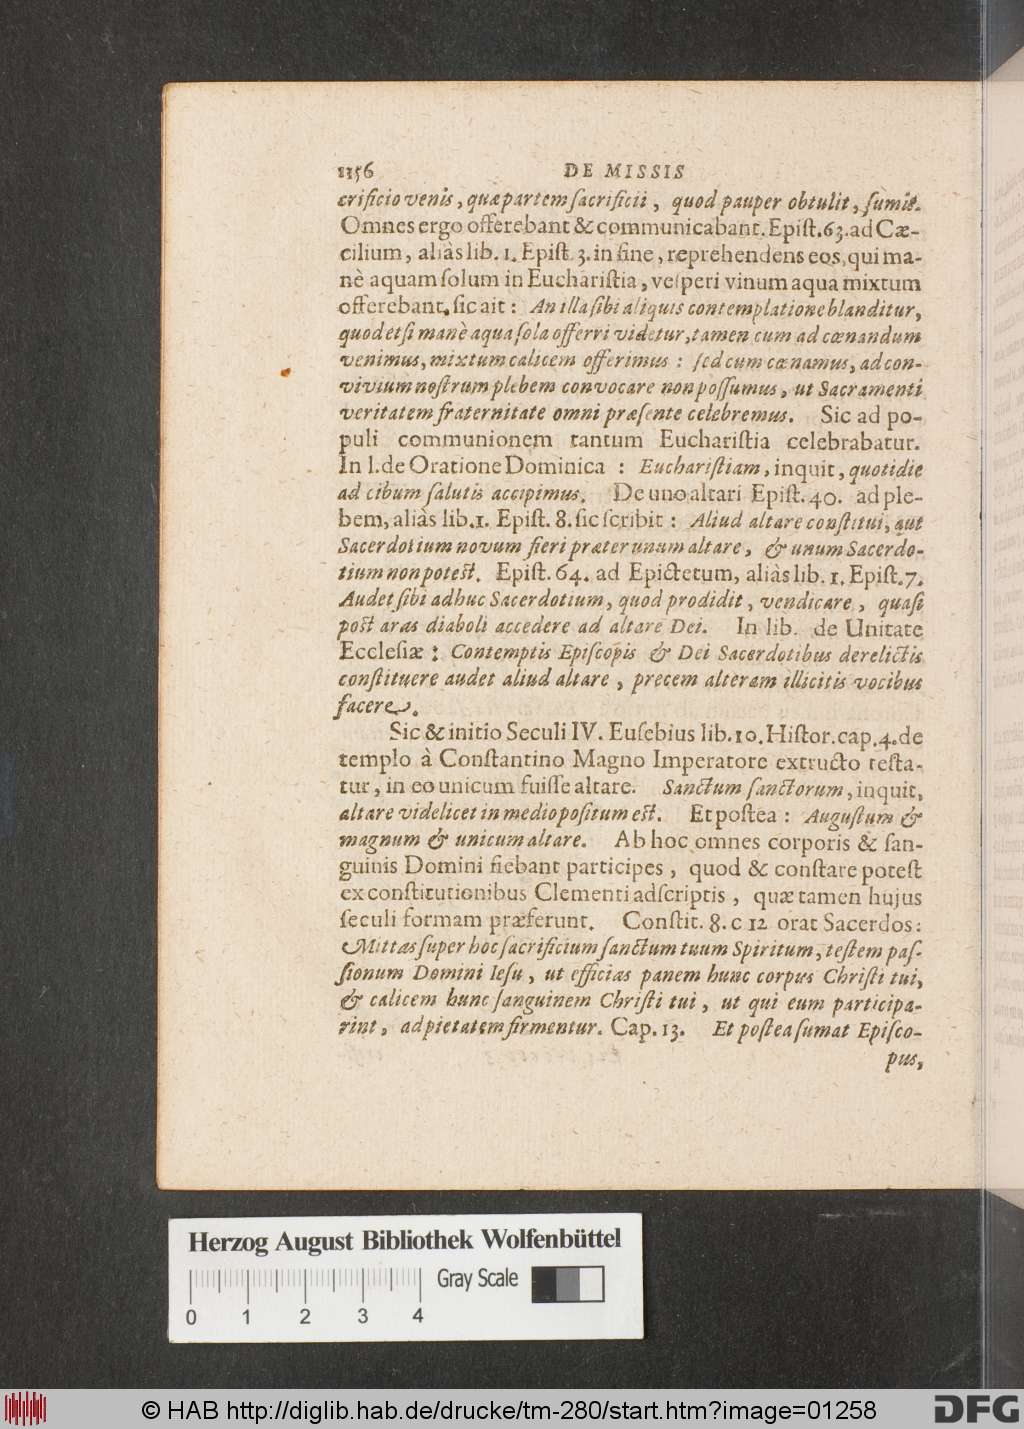 1356 DE MISSIS
crificio venis, quæ partem sacrificii, quod pauper obtulit, sumis.
Omnes ergo offerebant & communicabant. Epist. 63. ad Cæ-
cilium, aliàs lib. 1. Epist. 3. in fine, reprehendens eos, qui ma-
nè aquam solum in Eucharistia, vesperi vinum aqua mixtum
offerebant, sic ait: An illa sibi aliquis contemplatione blanditur,
quod etsi manè aqua sola offerri videtur, tamen cum ad cœnandum
venimus, mixtum calicem offerimus: sed cum cœnamus, ad con-
vivium nostrum plebem convocare non possumus, ut Sacramenti
veritatem fraternitate omni præsente celebremus. Sic ad po-
puli communionem tantum Eucharistia celebrabatur.
In l. de Oratione Dominica: Eucharistiam, inquit, quotidie
ad cibum salutis accipimus. De uno altari Epist. 40. ad ple-
bem, aliàs lib. 1. Epist. 8. sic scribit: Aliud altare constitui, aut
Sacerdotium novum fieri præter unum altare, & unum Sacerdo-
tium non potest. Epist. 64. ad Epictetum, aliàs lib. 1. Epist. 7.
Audet sibi adhuc Sacerdotium, quod prodidit, vendicare, quasi
post aras diaboli accedere ad altare Dei. In lib. de Unitate
Ecclesiæ: Contemptis Episcopis & Dei Sacerdotibus derelictis
constituere audet aliud altare, precem alteram illicitis vocibus
facere.
Sic & initio Seculi IV. Eusebius lib. 10. Histor. cap. 4. de
templo à Constantino Magno Imperatore extructo testa-
tur, in eo unicum fuisse altare. Sanctum sanctorum, inquit,
altare videlicet in medio positum est. Et postea: Augustum &
magnum & unicum altare. Ab hoc omnes corporis & san-
guinis Domini fiebant participes, quod & constare potest
ex constitutionibus Clementi adscriptis, quæ tamen hujus
seculi formam præferunt. Constit. 8. c 12 orat Sacerdos:
Mittas super hoc sacrificium sanctum tuum Spiritum, testem pas-
sionum Domini Iesu, ut efficias panem hunc corpus Christi tui,
& calicem hunc sanguinem Christi tui, ut qui eum participa-
rint, ad pietatem firmentur. Cap. 13. Et postea sumat Episco-
pus,
Herzog August Bibliothek Wolfenbüttel
Gray Scale
0 1 2 3 4
© HAB http://diglib.hab.de/drucke/tm-280/start.htm?image=01258
DFG